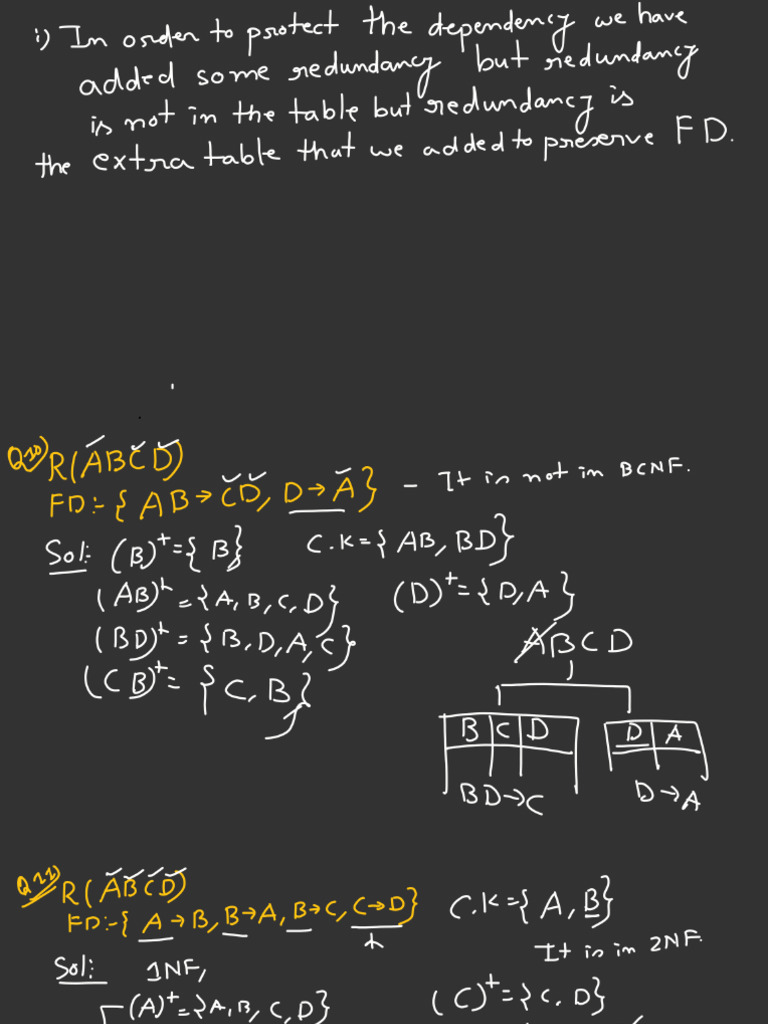 i) In order to protect the dependency we have
added some redundancy but redundancy
is not in the table but redundancy is
the extra table that we added to preserve FD.
Q20) R(ABCD)
FD:- { AB→CD, D→A} - It is not in BCNF.
Sol: (B)+={ B} C.K={ AB, BD}
(AB)+={A, B, C, D} (D)+={D,A}
(BD)+ = {B, D, A, C}
(CB)+= {C, B}
ABCD
B C D D A
BD→C D→A
Q21) R(ABCD)
FD:-{ A→B, B→A, B→C, C→D} C.K={ A, B}
It is in 2NF.
Sol: 1NF,
(A)+={A, B, C, D} (C)+={C, D}